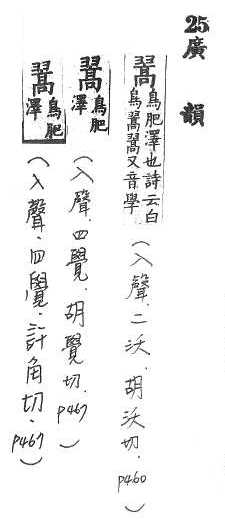 25廣韻
翯鳥肥澤也詩云白鳥翯翯又音學(入聲.二沃.胡沃切.P460)
翯鳥肥澤(入聲.四覺.胡覺切.P467)
翯鳥肥澤(入聲.四覺.許角切.P467)